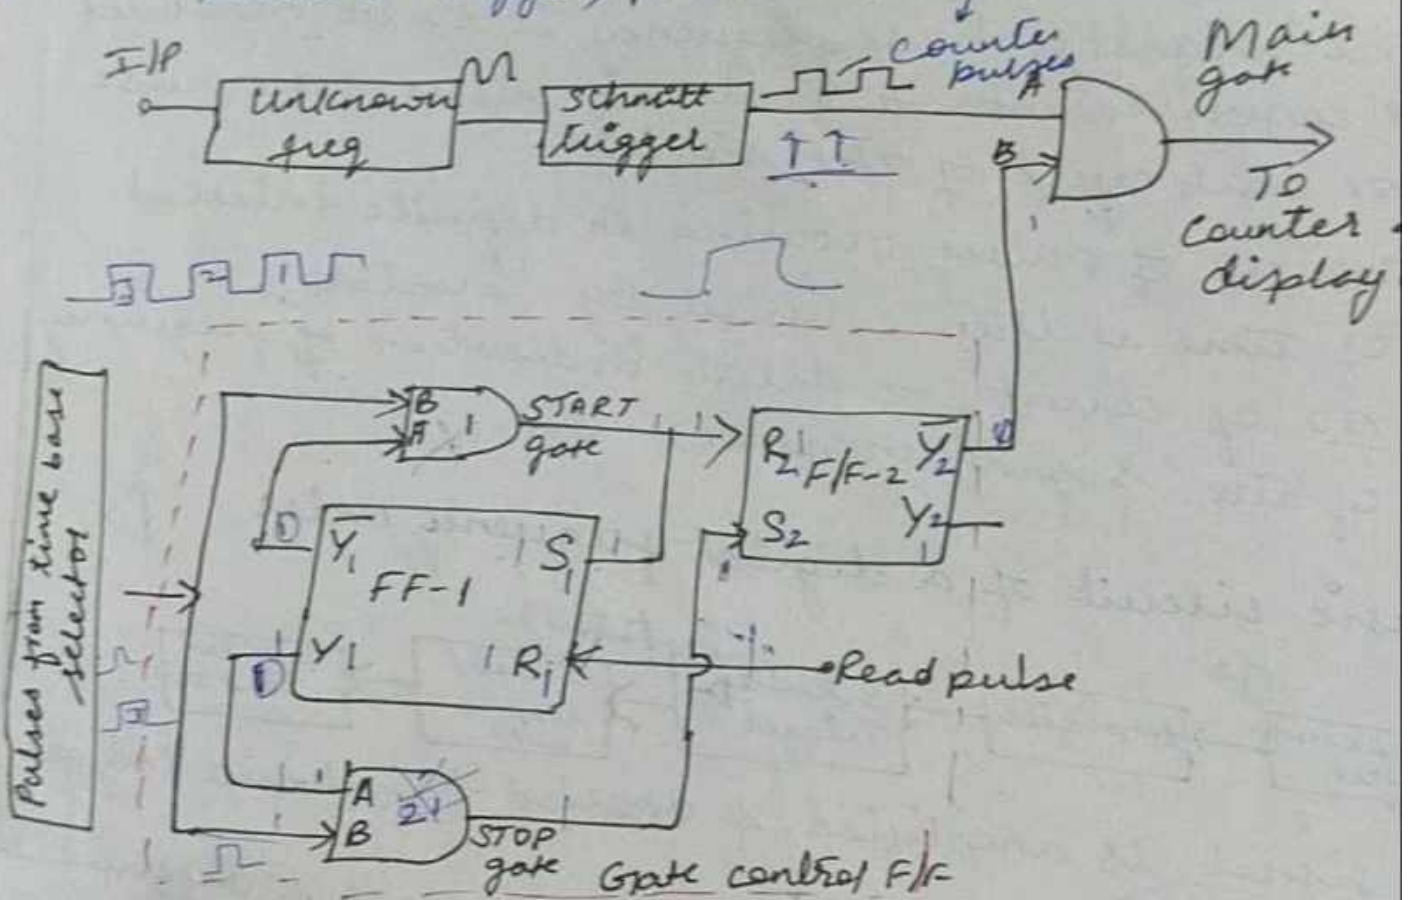 I/P
Unknown
freq
Schmitt
trigger
counter
pulses
A
B
1
Main
gate
To
counter
display
3 2 1
Pulses from time base
selector
B
A
1
START
gate
1 1
R2 1
F/F-2
Y̅2
0
S2
Y2
1
Y̅1
S1
1
FF-1
Y1
1
R1
1
Read pulse
A
B
1
STOP
gate
Gate control F/F